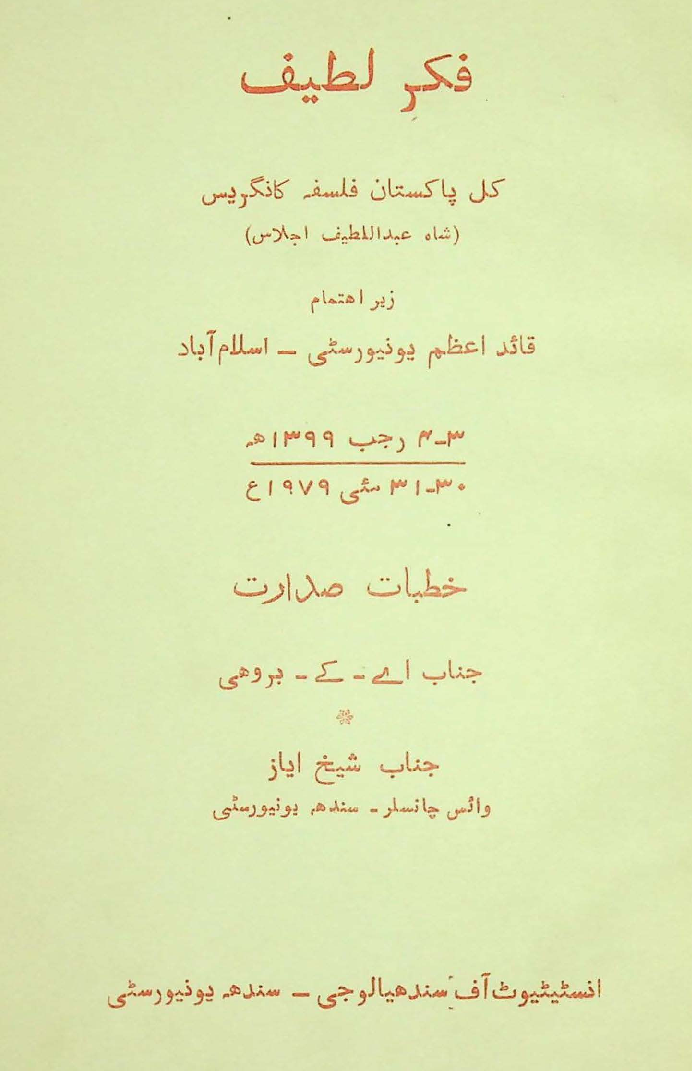 فکرِ لطیف
کل پاکستان فلسفہ کانگریس
(شاہ عبداللطیف اجلاس)
زیر اهتمام
قائد اعظم یونیورسٹی ـ اسلام آباد
۳ـ۴ رجب ۱۳۹۹ھ
۳۰ـ۳۱ مئی ۱۹۷۹ع
خطبات صدارت
جناب اے ـ کے ـ بروهی
جناب شیخ ایاز
وائس چانسلر ـ سندھ یونیورسٹی
انسٹیٹیوٹ آف سندھیالوجی ـ سندھ یونیورسٹی